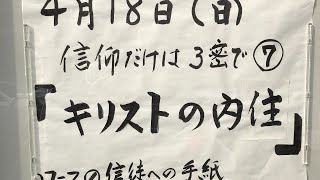 4月18日(日)
信仰だけは3密で⑦
「キリストの内住」
ロマへの信徒への手紙